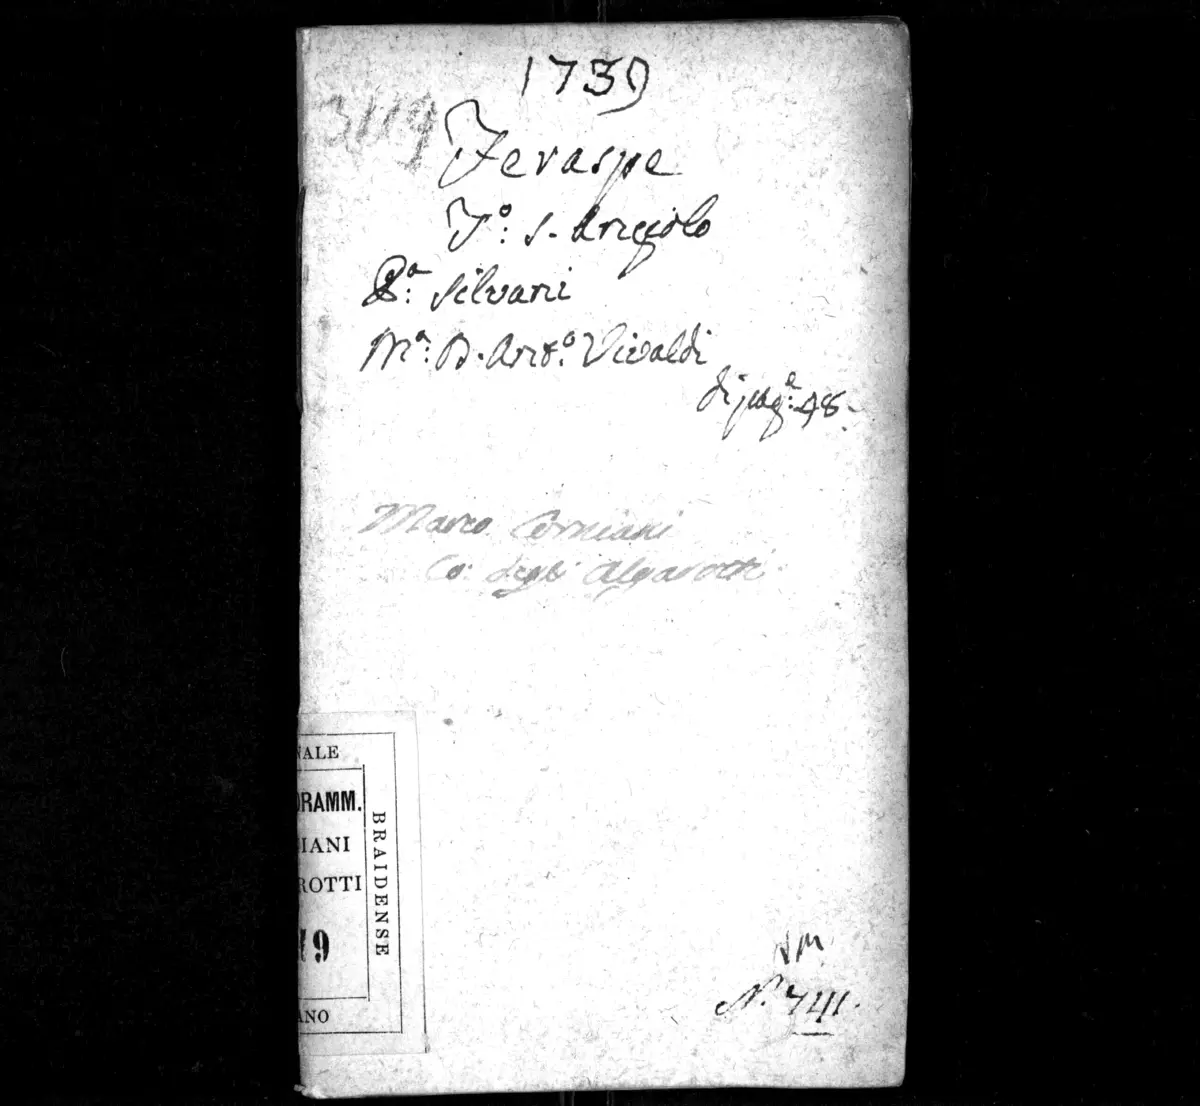 1739
3119
Feraspe
T.º S. Angiolo
P.ª Silvani
M.ª D. Ant.º Vivaldi
di pag.e 48.
Marco Corniani
Co: degli Algarotti
NALE
DRAMM.
IANI
ROTTI
19
ANO
BRAIDENSE
N. 741.